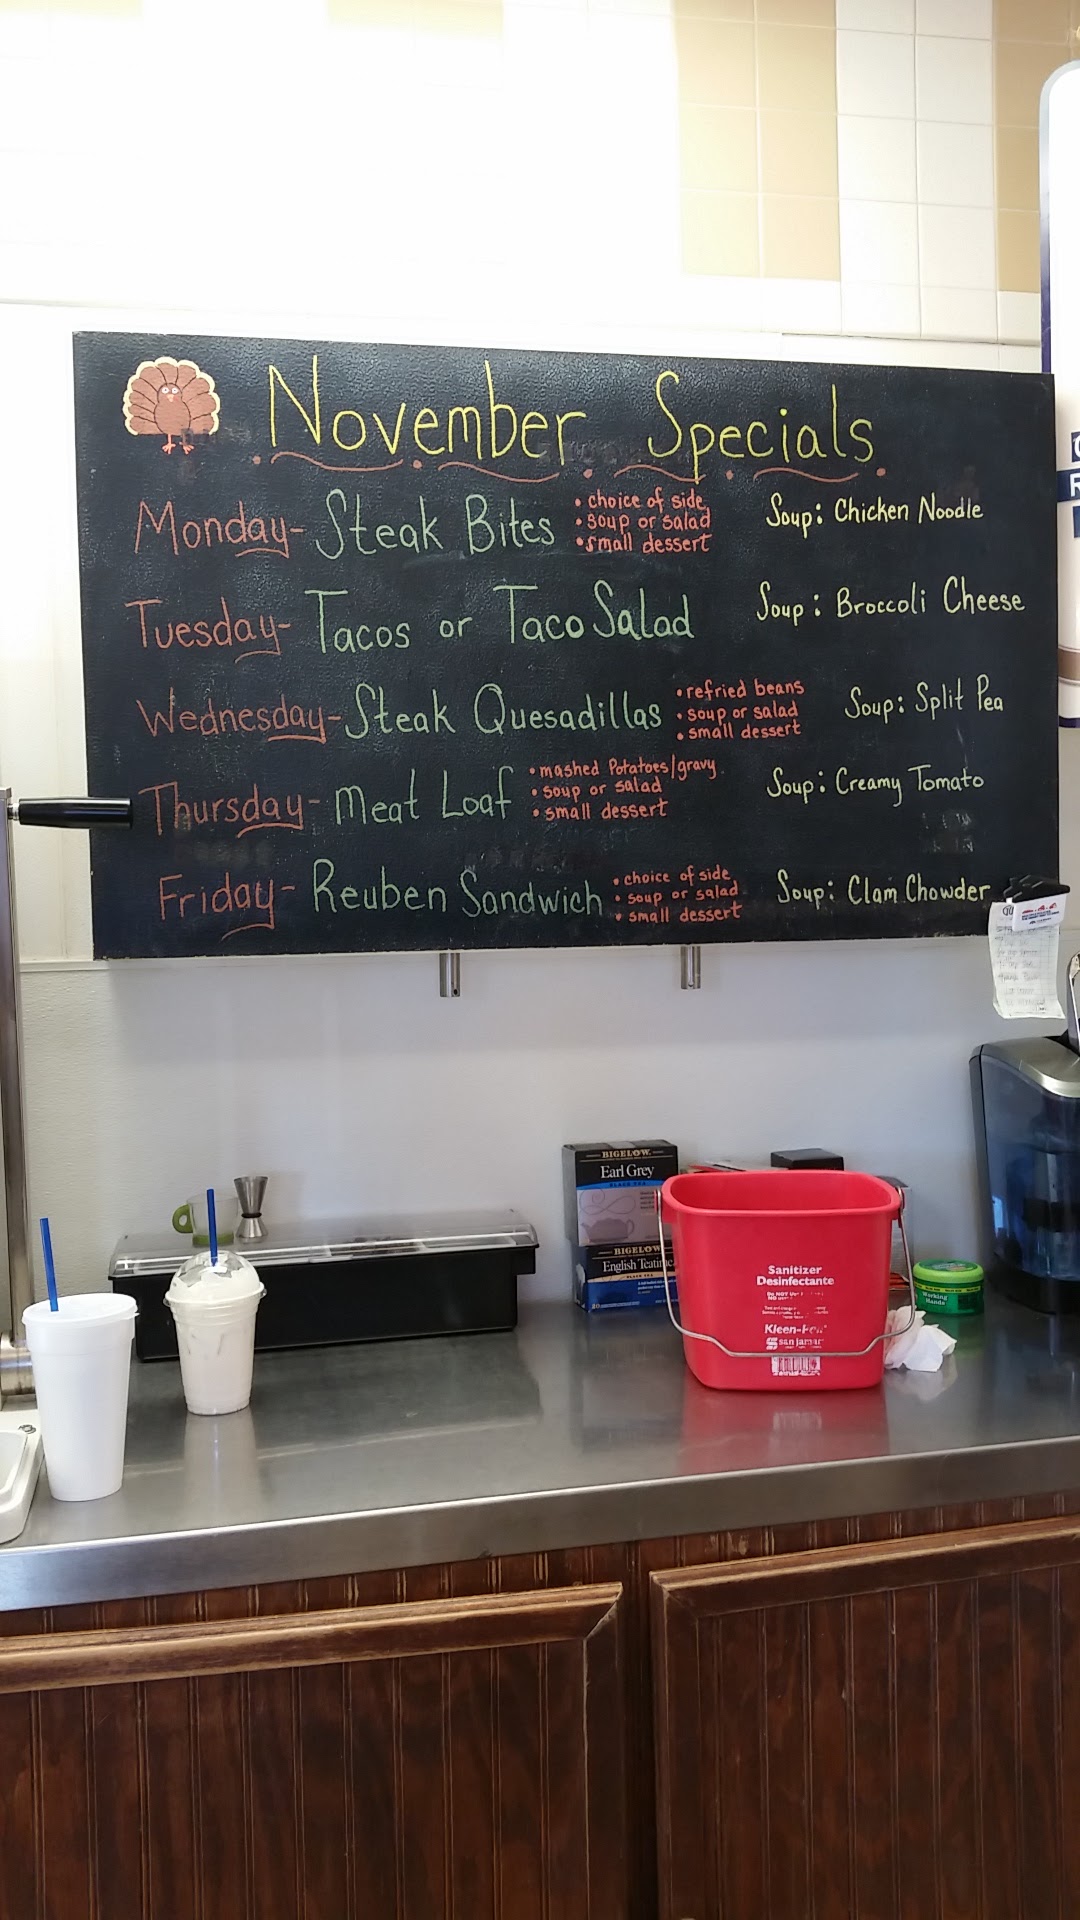 November Specials
Monday- Steak Bites
• choice of side
• soup or salad
• small dessert
Soup: Chicken Noodle
Tuesday- Tacos or Taco Salad
Soup: Broccoli Cheese
Wednesday- Steak Quesadillas
• refried beans
• soup or salad
• small dessert
Soup: Split Pea
Thursday- Meat Loaf
• mashed Potatoes/gravy
• soup or salad
• small dessert
Soup: Creamy Tomato
Friday- Reuben Sandwich
• choice of side
• soup or salad
• small dessert
Soup: Clam Chowder
BIGELOW
Earl Grey
BLACK TEA
BIGELOW
English Teatime
Sanitizer
Desinfectante
Kleen-Pail
san jamar
Working
Hands